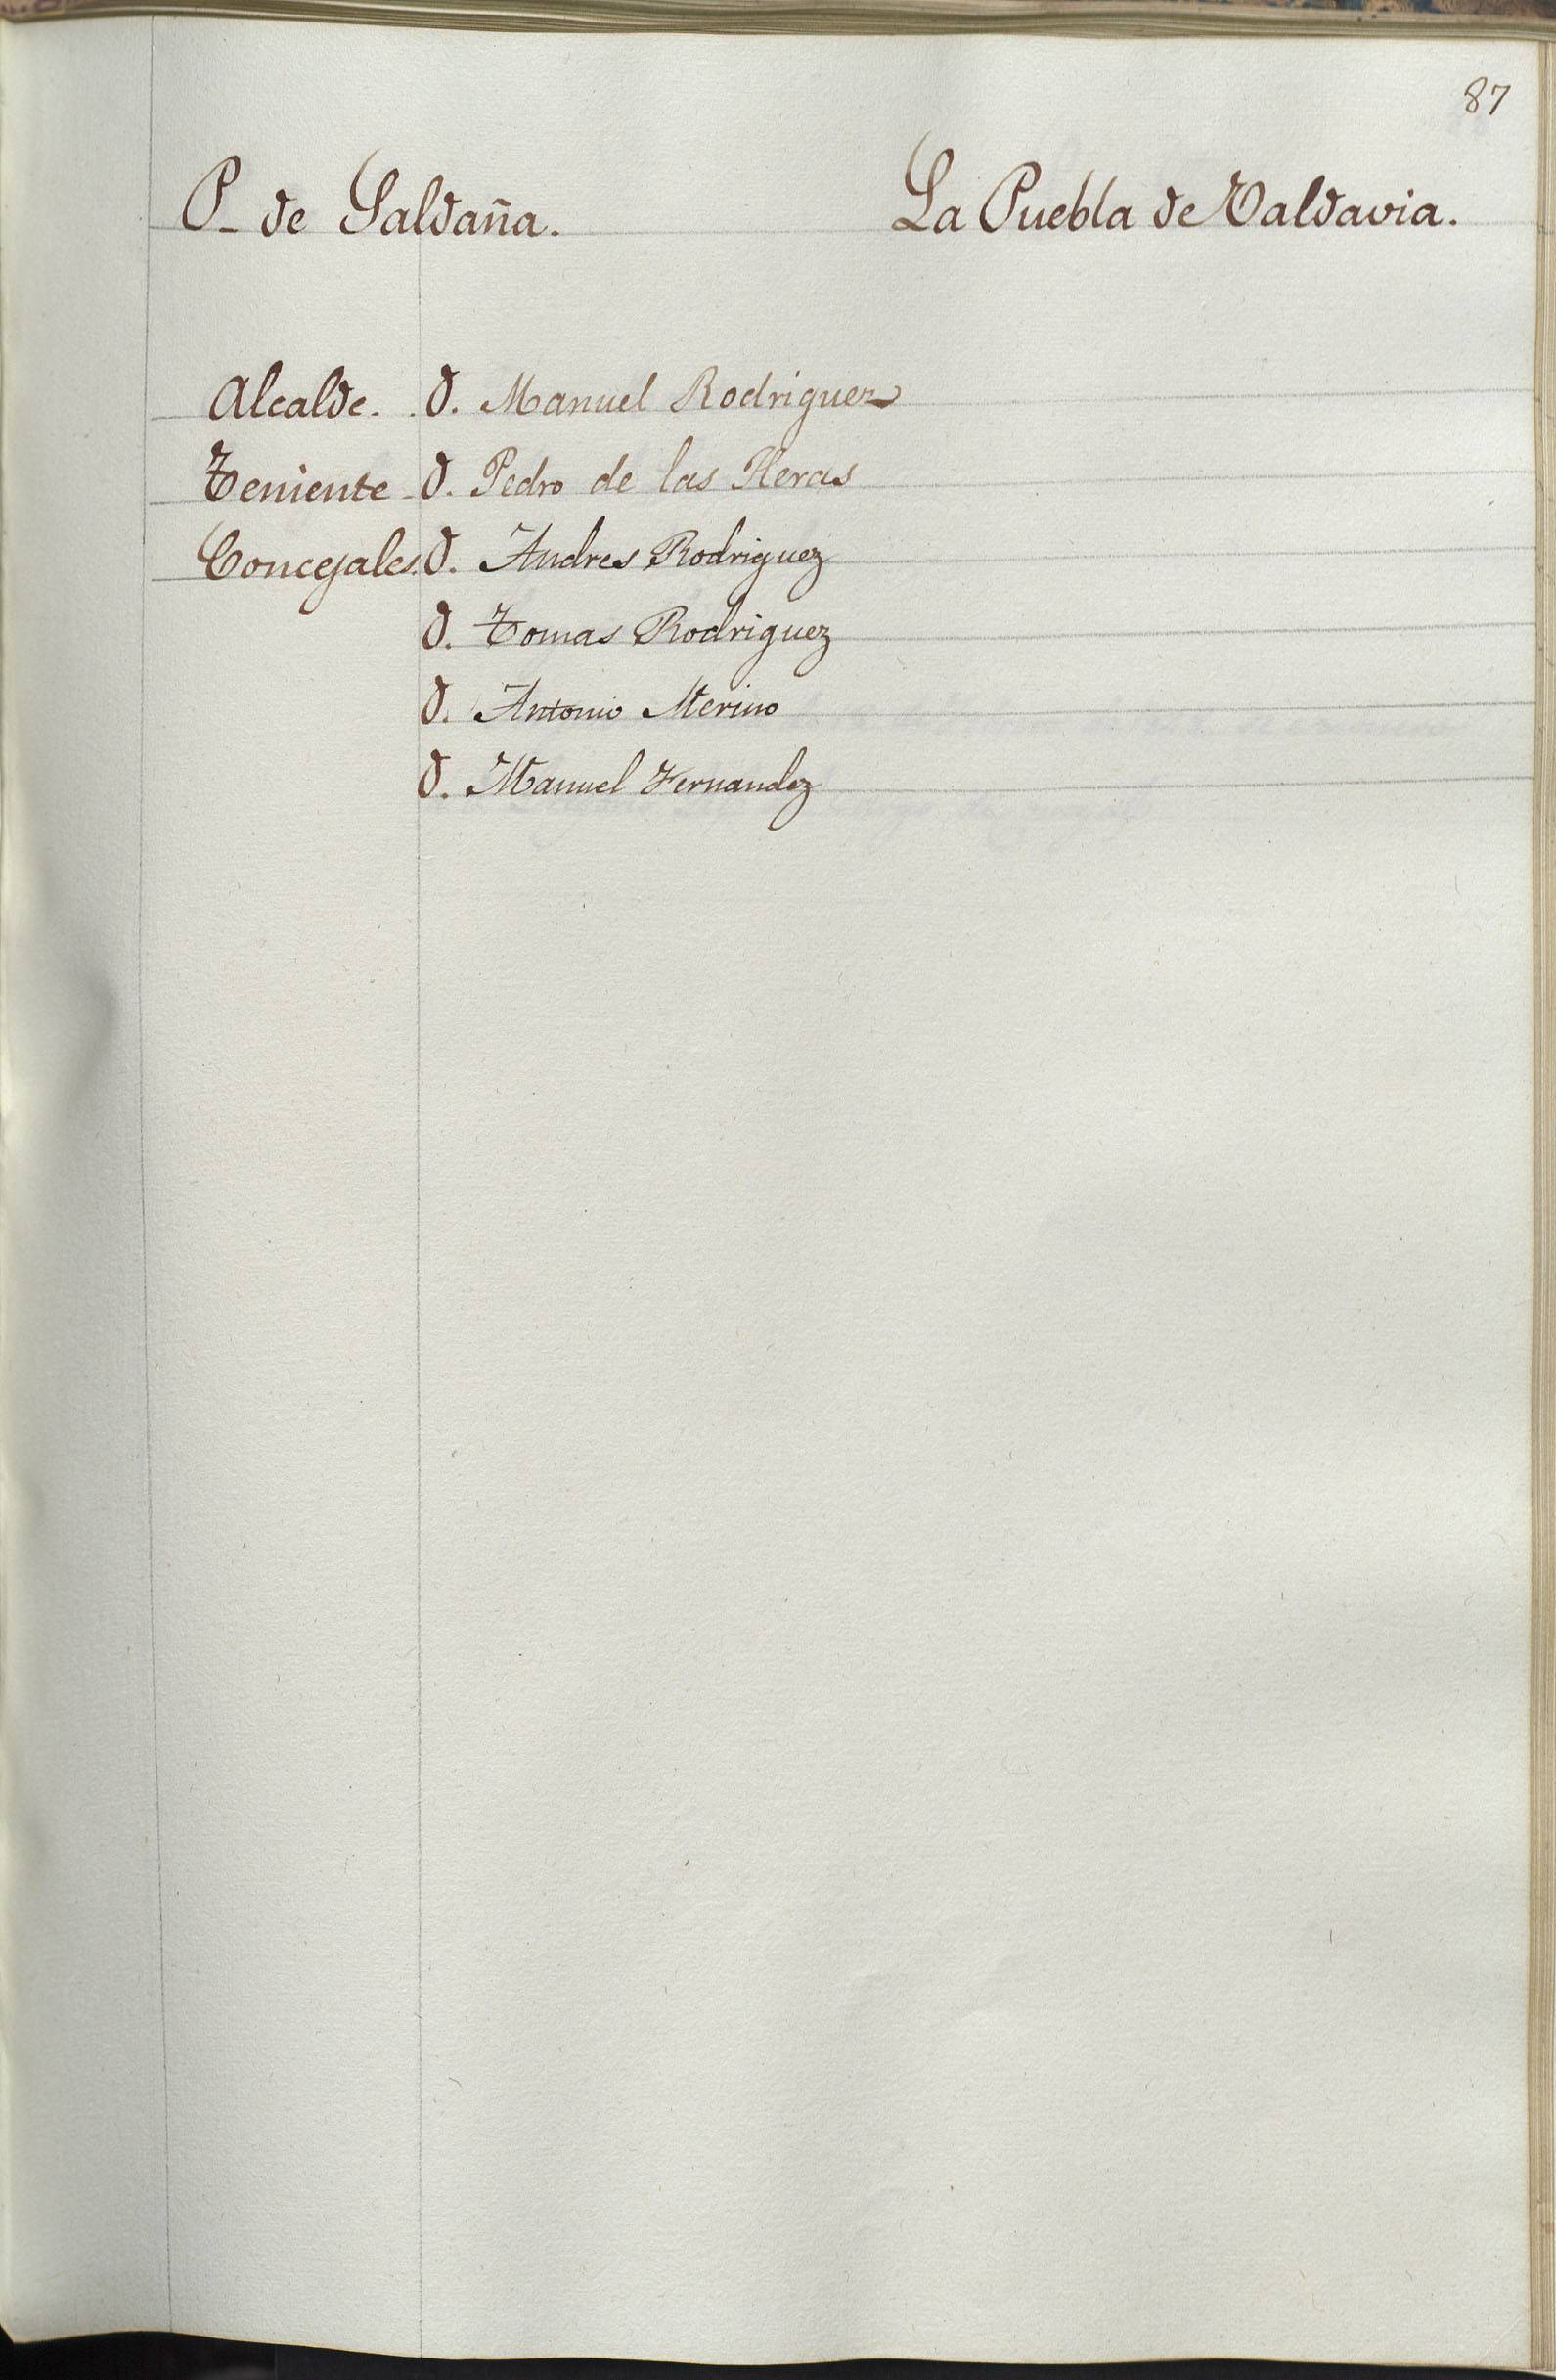 87
P- de Saldaña. La Puebla de Valdavia.
Alcalde. . D. Manuel Rodriguez
Teniente - D. Pedro de las Heras
Concejales. D. Andres Rodriguez
D. Tomas Rodriguez
D. Antonio Merino
D. Manuel Fernandez